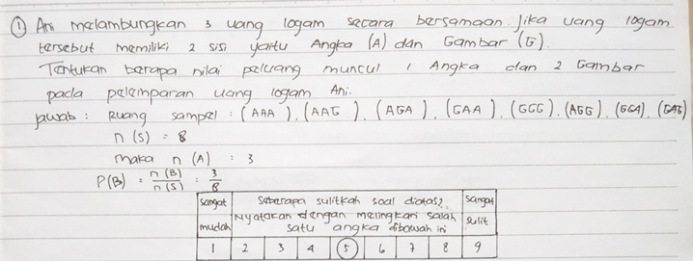 ① Ani melambungkan 3 uang logam secara bersamaan. Jika uang logam
tersebut memiliki 2 sisi yaitu Angka (A) dan Gambar (G).
Tentukan berapa nilai peluang muncul 1 Angka dan 2 Gambar
pada pelemparan uang logam Ani.
Jawab : Ruang sampel : (AAA), (AAG), (AGA), (GAA), (GGG), (AGG), (GGA), (GAG)
n (S) = 8
maka n (A) : 3
P(B) : n(B)/n(S) : 3/8
Sangat mudah
Seberapa sulitkah soal diatas?
Nyatakan dengan melingkari salah
satu angka dibawah ini
Sangat sulit
1 2 3 4 ⑤ 6 7 8 9